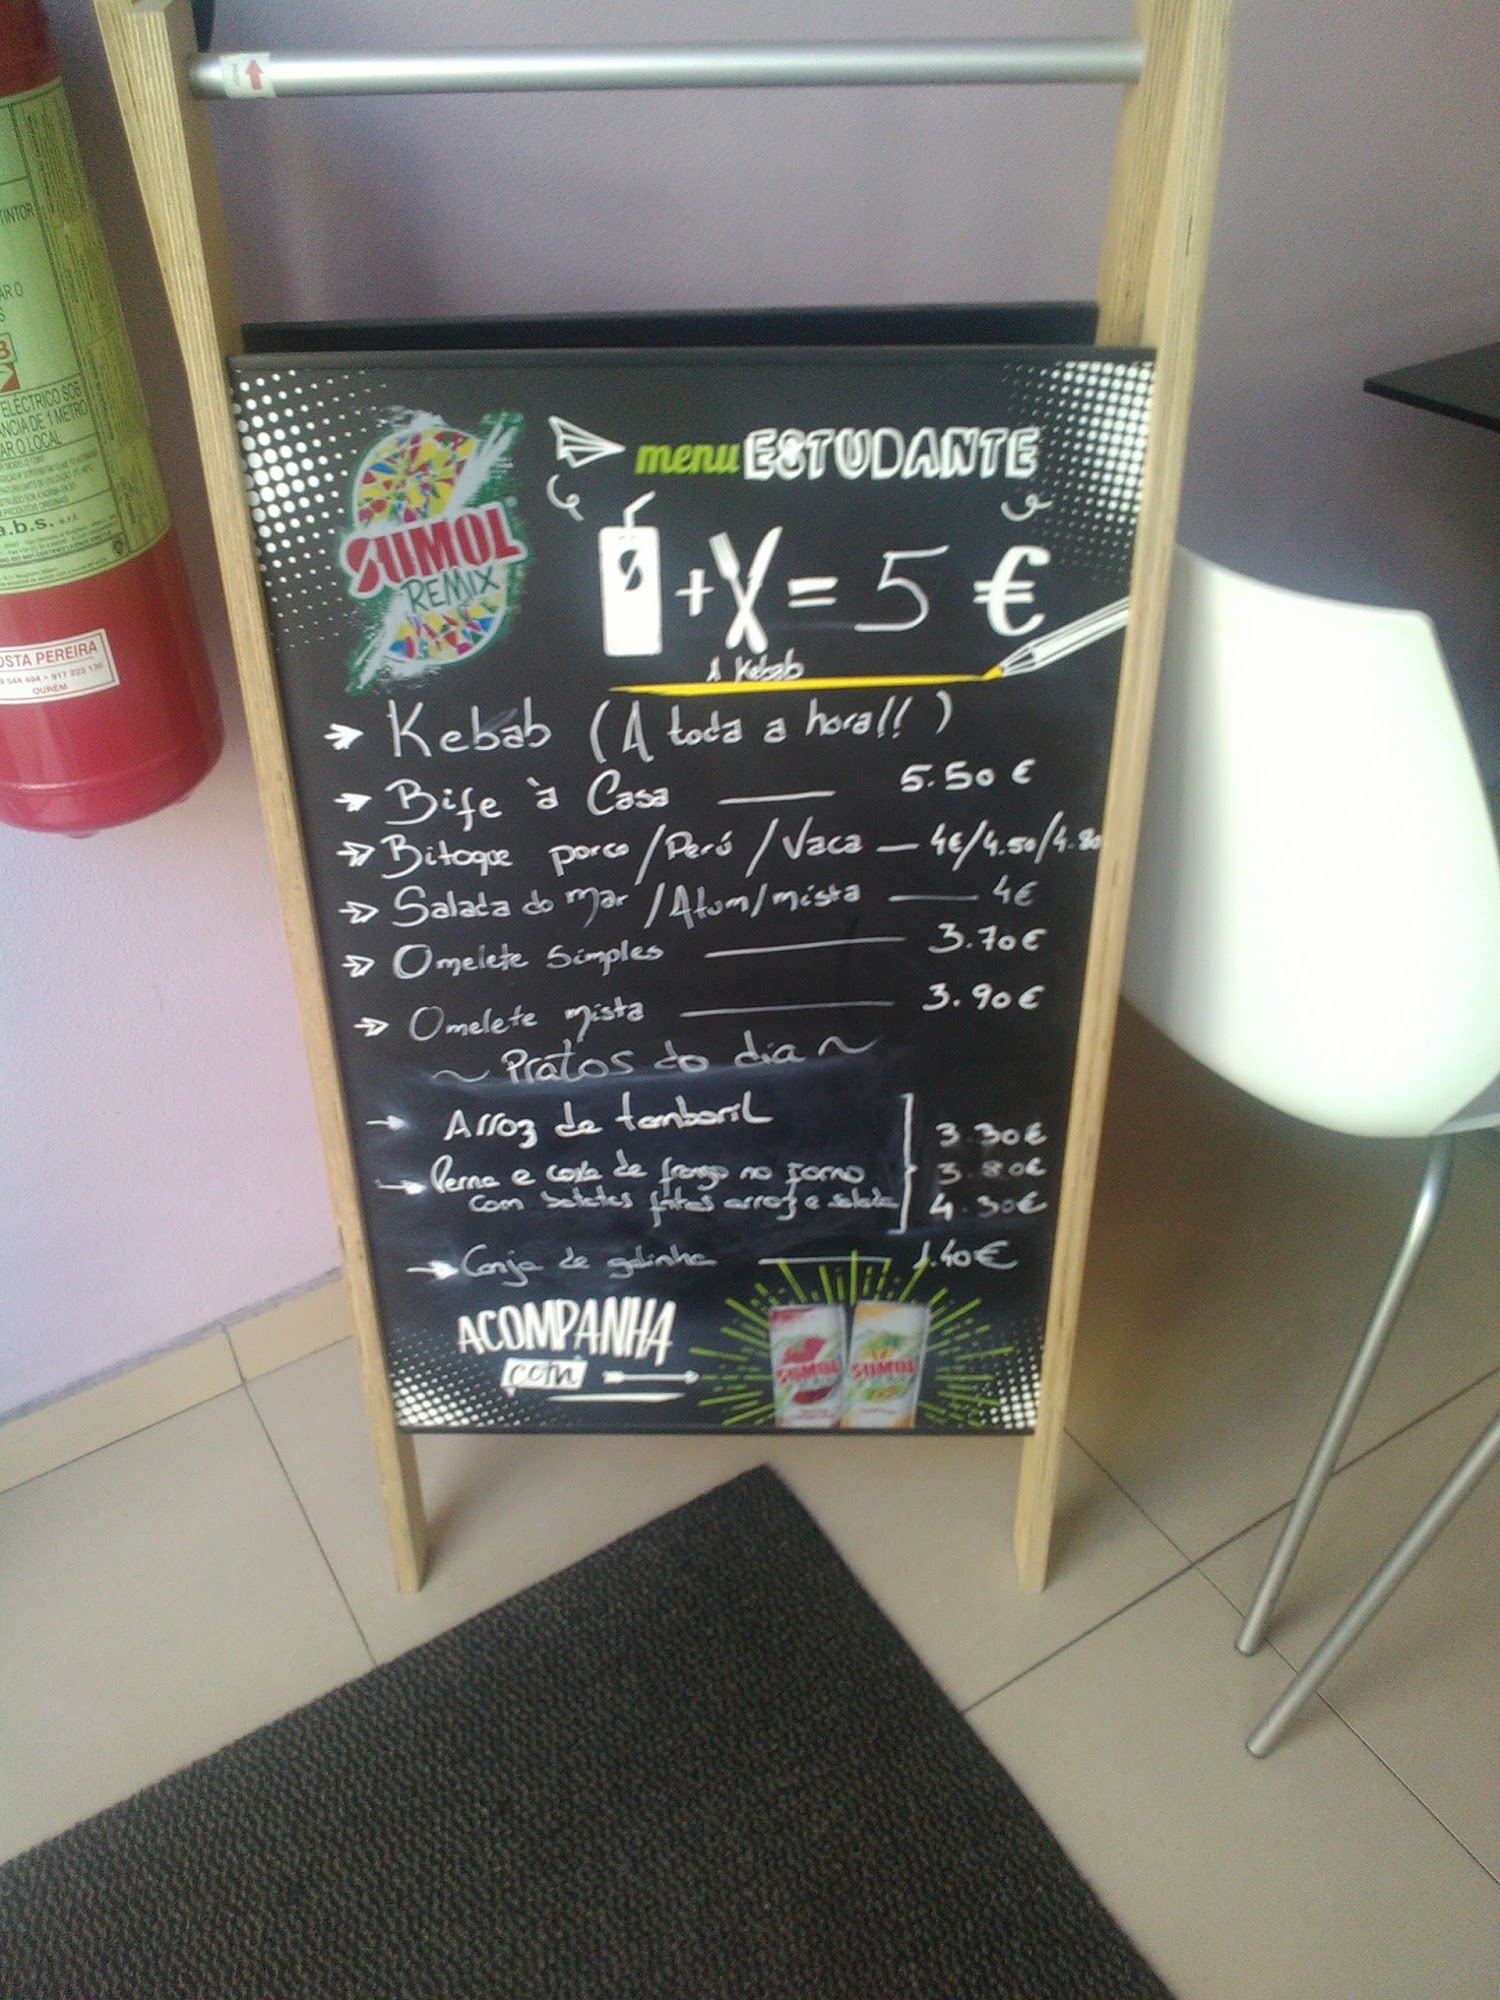 TINTOR
AR O
ELÉCTRICO SOB
ÂNCIA DE 1 METRO
AR O LOCAL
a.b.s. s.r.l.
OSTA PEREIRA
544 494 • 917 223 136
OURÉM
menu ESTUDANTE
SUMOL
REMIX
+ = 5 €
1 Kebab
Kebab (A toda a hora!!)
Bife à Casa 5.50 €
Bitoque porco/Perú/Vaca — 4€/4.50/4.80
Salada do Mar/Atum/mista 4€
Omelete Simples 3.70€
Omelete mista 3.90€
~ Pratos do dia ~
Arroz de tamboril 3.30€
Perna e coxa de frango no forno 3.80€
com batatas fritas arroz e salada 4.30€
Canja de galinha 1.40€
ACOMPANHA
com
SUMOL SUMOL